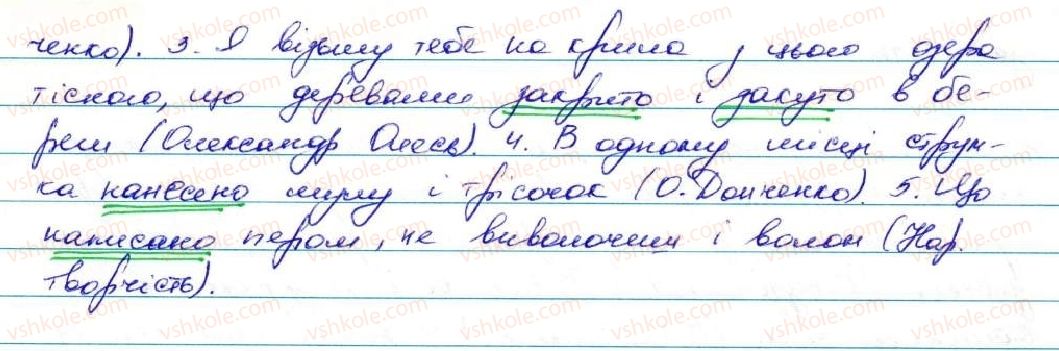 ченко). 3. Я візьму тебе на крила з цього озера
тісного, що деревами закрито і закуто в бе-
реги (Олександр Олесь). 4. В одному місці струм-
ка нанесено мулу і трісочок (О. Донченко). 5. Що
написано пером, не виволочиш і волом (Нар.
творчість).